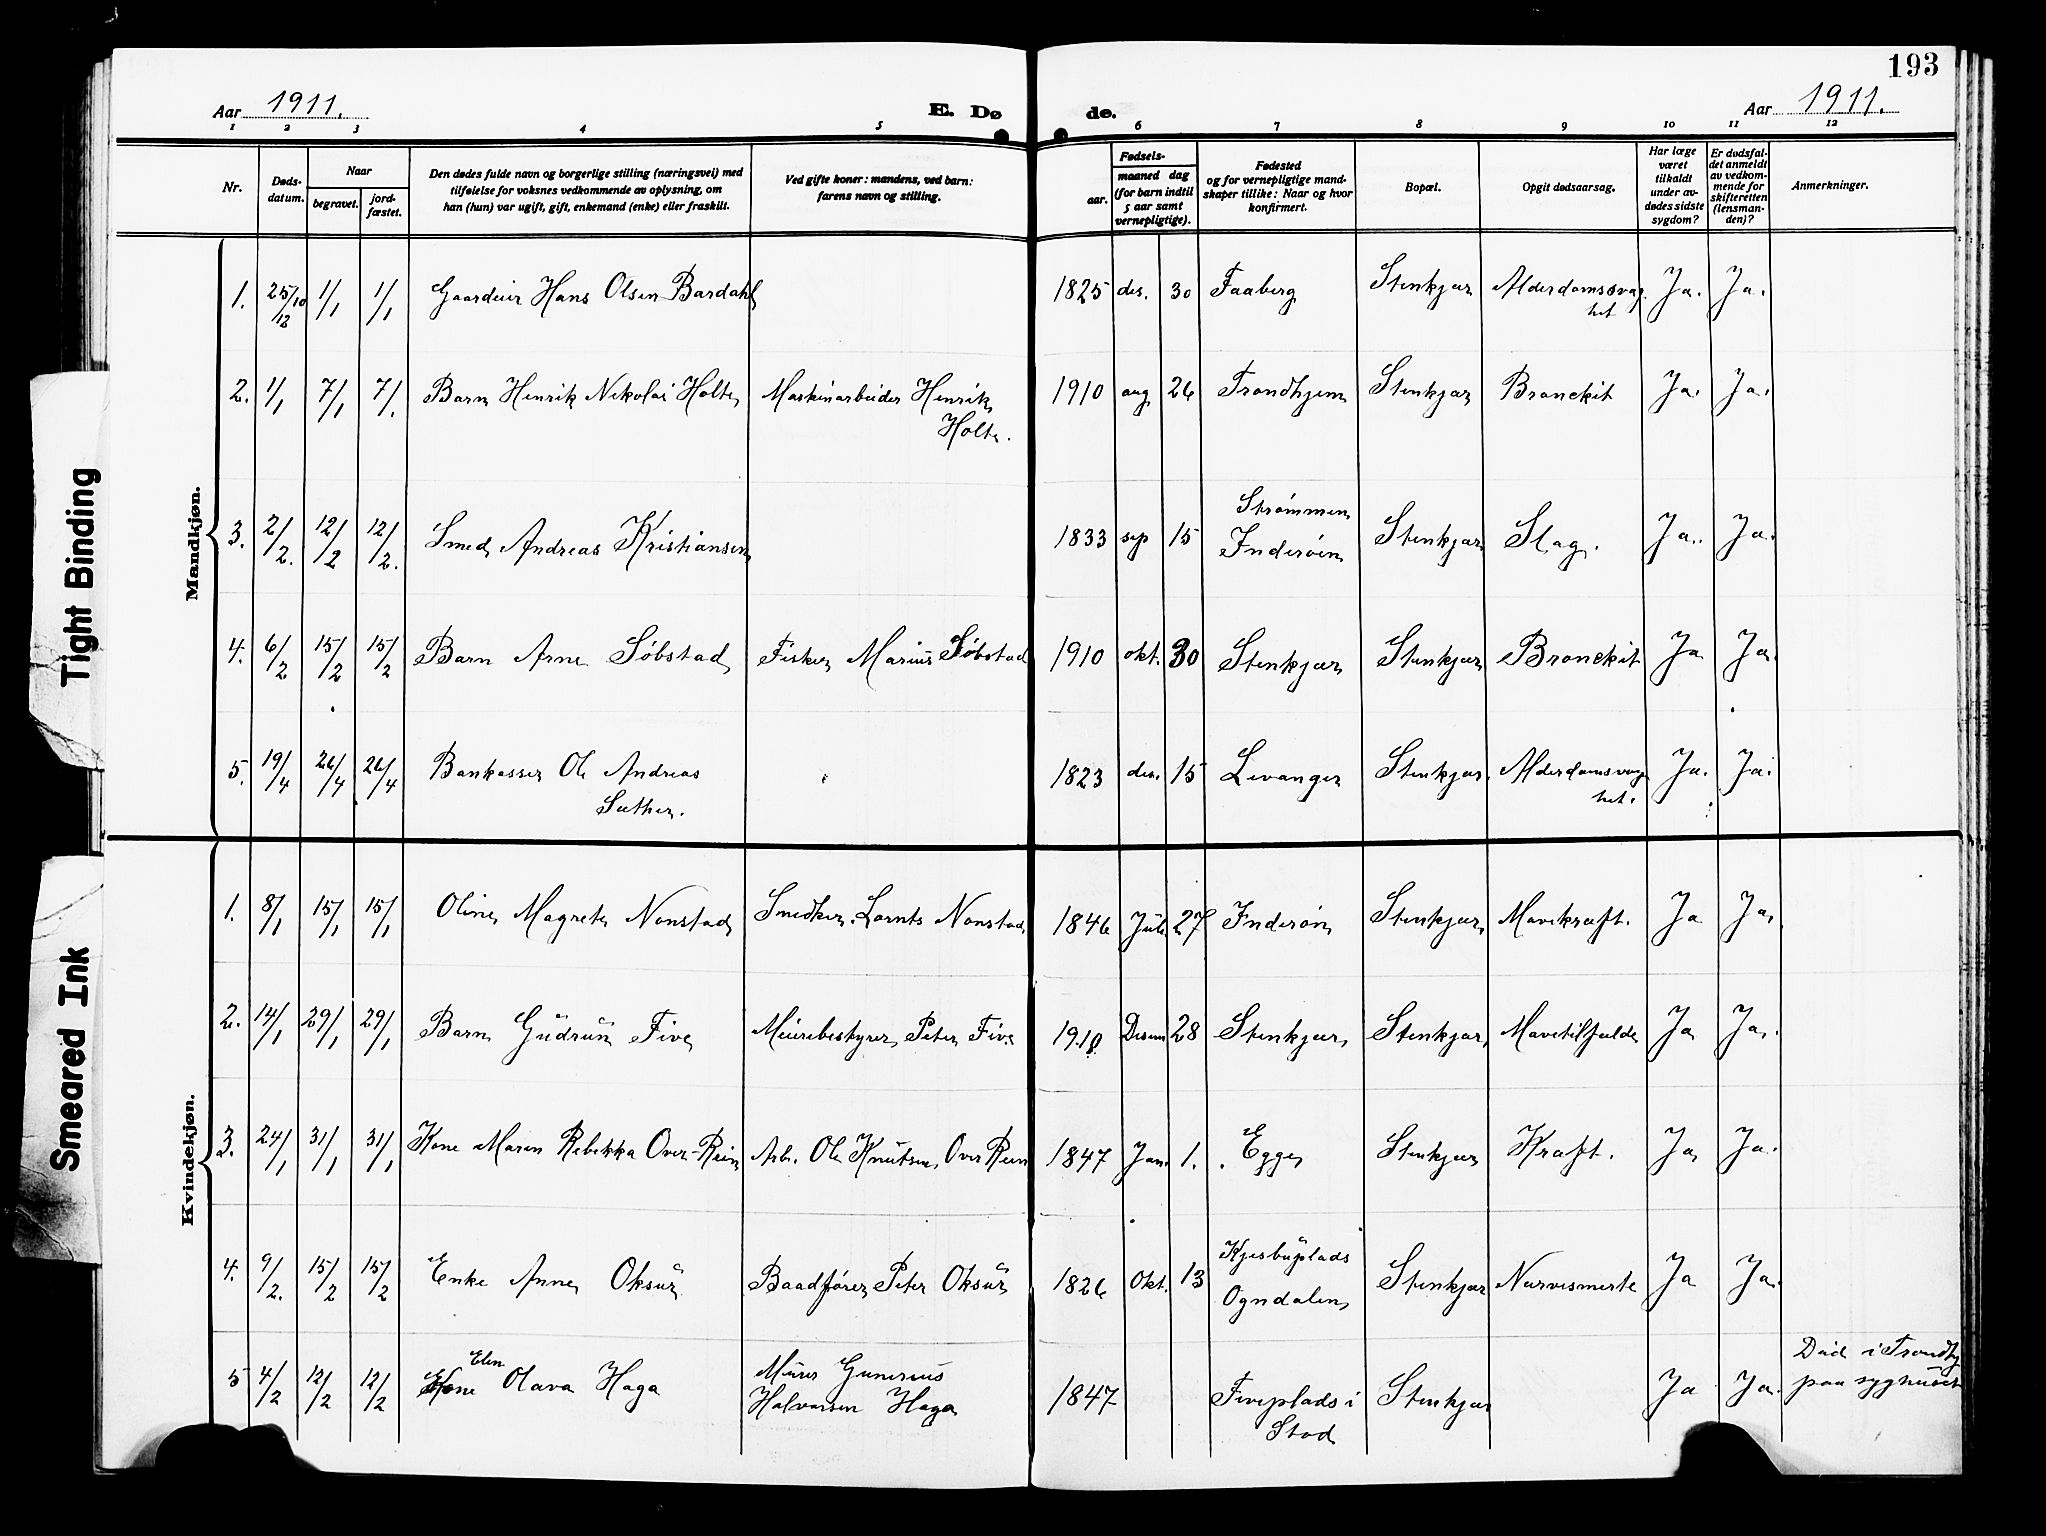 193
Aar 1911.
E. Dø de.
Aar 1911.
1 2 3 4 5 6 7 8 9 10 11 12
Nr.
Døds-
datum.
Naar
begravet.
jord-
fæstet.
Den dødes fulde navn og borgerlige stilling (næringsvei) med
tilføielse for voksnes vedkommende av oplysning, om
han (hun) var ugift, gift, enkemand (enke) eller fraskilt.
Ved gifte koner: mandens, ved barn:
farens navn og stilling.
Fødsels-
aar.
maaned dag
(for barn indtil
5 aar samt
vernepligtige).
Fødested
og for vernepligtige mand-
skaper tillike: Naar og hvor
konfirmert.
Bopæl.
Opgit dødsaarsag.
Har læge
været
tilkaldt
under av-
dødes sidste
sygdom?
Er dødsfal-
det anmeldt
av vedkom-
mende for
skifteretten
(lensman-
den)?
Anmerkninger.
Mandkjøn.
1. 25/10 1/1 1/1 Hans Olsen Bardahl 1825 des. 30 Faaberg Stenkjær Alderdomssvag Ja. Ja.
12 het
2. 1/1 7/1 7/1. Barn Henrik Nikolai Holte Maskinarbeider Henrik 1910 aug 26 Trondhjem Stenkjær Bronckit Ja. Ja.
Holte.
Strømmen
3. 2/2. 12/2 12/2. Smed Andreas Kristiansen 1833 sep 15 Inderøen Stenkjær Slag. Ja. Ja.
4. 6/2 15/2 15/2 Barn Arne Søbstad Fisker Marius Søbstad 1910 okt. 30 Stenkjær Stenkjær Bronckit Ja Ja.
5. 19/4 26/4 26/4 Bankasser Ole Andreas 1823 des. 15 Levanger Stenkjær. Alderdomsvag Ja. Ja.
Sæther. het.
Kvindekjøn.
1. 8/1 15/1 15/1 Oline Magrete Nonstad Snedker Lornts Nonstad 1846 Juli 27 Inderøn Stenkjær Mavekræft. Ja Ja.
2. 14/1 29/1 29/1 Barn Gudrun Five Meieribestyrer Peter Five 1910 Desem 28 Stenkjær Stenkjær Mavetilfælde Ja Ja.
3. 24/1 31/1 31/1 Kone Maren Rebekka Over-Rein Arb. Ole Knutsen Over Rein 1847 Jan. 1. Egge Stenkjær Kræft. Ja Ja.
Kjesbuplads
4. 9/2. 15/2 15/2 Enke Anne Oksur Baadfører Peter Oksur 1826 Okt. 13 Ogndalen Stenkjær Nervesmerte Ja Ja.
Elen Murer Gunerius Død i Trondhj
5 4/2 12/2 12/2 Kone Olava Haga Halvorsen Haga 1847 Fiveplads i Stenkjær Ja Ja. paa sykhuset
Stod
Tight Binding
Smeared Ink